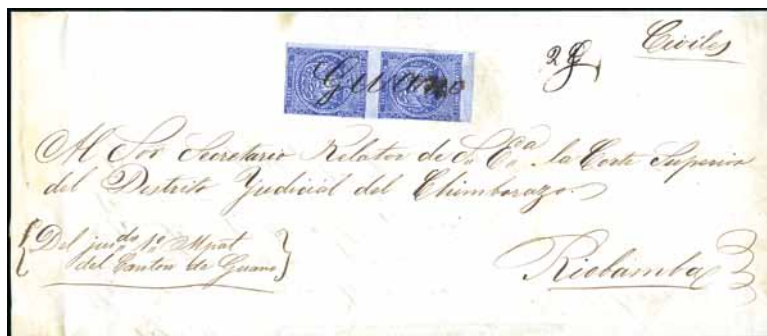 Civiles
Guano
Al Sor Secretario Relator de S. Eᵃ la Corte Superior
del Distrito Judicial del Chimborazo
Del juzdo 1º Mpal
del Canton de Guano
Riobamba